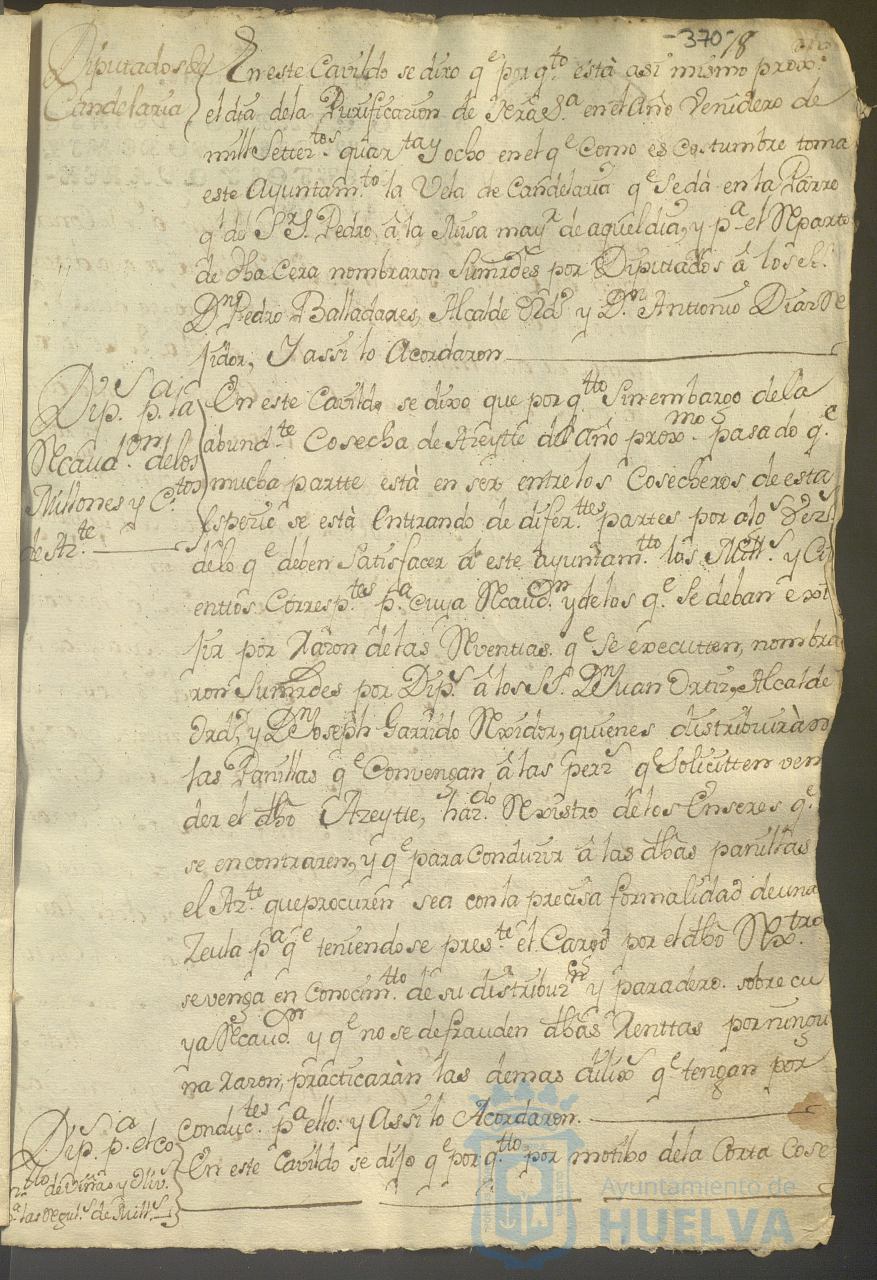 -370-/8
Diputados de
Candelaria
En este Cavildo se dixo qe por qto està asi mismo proxo
el dia dela Purificazion de Nrã Sra en el Año Venidero de
mill Settectos quartay ocho en el qe como es Costumbre toma
este Ayuntamto la Vela de Candelaria qe se dà en la Párro
ql del Sr S. Pedro â la Misa mayr de aquel dia, y pa el Reparto
de dha Cera nombraron Sus mrdes por Diputados â los SS.
Dn Pedro Balladares, Alcalde Ordo y Dn Anttonio Diaz Re
jidor, Y assi lo Acordaron
Dips pa la
Recaudzon delos
Millones y Ctos
de Azte
En este Cavildo se dixo que por qtto Sin embargo dela
abundte Cosecha de Azeytte del Año proxmo pasado qe
mucha partte està en ser entre los Cosecheros de esta
Espezie se està Enttrando de difertes partes por alos
delo qe deben Satisfacer â este ayuntamtto los Mills y Ci
enttos Correspttes pa cuya Recaudn y de los qe Se deban exi
jir por Razon de las Reventtas qe se executten, nombra
ron Sus mrdes por Dips â los SS. Dn Juan Ortiz, Alcalde
Ordo y Dn Joseph Garrido Rexidor, quienes distribuiràn
las Panillas qe Convengan â las pers qe Solicitten ven
der el dho Azeytte, hardo Rexistro de los Enseres qe
se encontraren, y qe para Conduzir â las dhas panillas
el Azte que procuren sea con la precisa formalidad de una
Zeula pa qe teniendose preste el Cargo por el dho Rextro
se venga en Conocimtto de su distribuzn y paradero. sobre cu
ya Recaudn y qe no se defrauden dhas Renttas por ningu
na razon, practicaràn las demas dilixs qe tengan por
conducttes pa ello: y Assi lo Acordaron.
Dips pa el co
to de viñas y Oliv.
las Regulas de Mills
En este Cavildo se dijo qe por qtto por motibo de la Corta Cose
Ayuntamiento de
HUELVA